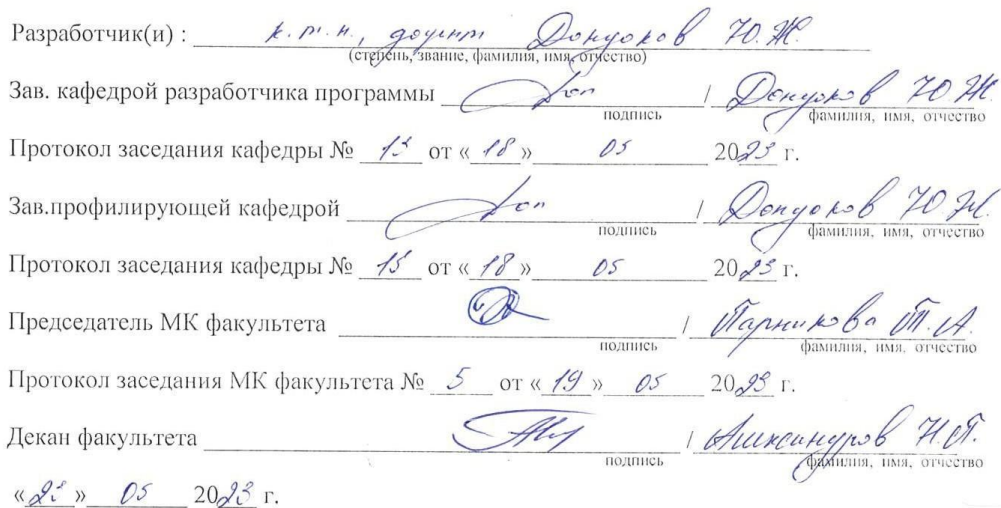 Разработчик(и) : к.т.н., доцент Дондоков Ю.Ж.
(степень, звание, фамилия, имя, отчество)
Зав. кафедрой разработчика программы / Дондоков Ю.Ж.
подпись фамилия, имя, отчество
Протокол заседания кафедры № 15 от « 18 » 05 2023 г.
Зав.профилирующей кафедрой / Дондоков Ю.Ж.
подпись фамилия, имя, отчество
Протокол заседания кафедры № 15 от « 18 » 05 2023 г.
Председатель МК факультета / Парникова Т.А.
подпись фамилия, имя, отчество
Протокол заседания МК факультета № 5 от « 19 » 05 2023 г.
Декан факультета / Н.П.
подпись фамилия, имя, отчество
« 23 » 05 2023 г.